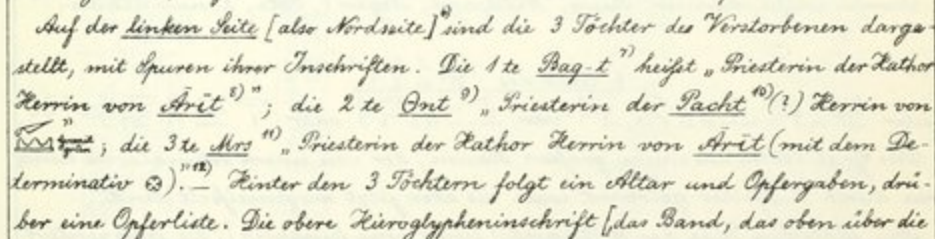 Auf der linken Seite [also Nordseite] 6) sind die 3 Töchter des Verstorbenen darge-
stellt, mit Spuren ihrer Inschriften. Die 1te Bag-t 7) heißt „Priesterin der Hathor
Herrin von Ārīt 8)"; die 2te Ont 9) „Priesterin der Pacht 10) (?) Herrin von
"; die 3te Mrs 11) „Priesterin der Hathor Herrin von Ārīt (mit dem De-
terminativ 𓊖)." 12) — Hinter den 3 Töchtern folgt ein Altar und Opfergaben, drü-
ber eine Opferliste. Die obere Hieroglypheninschrift [das Band, das oben über die